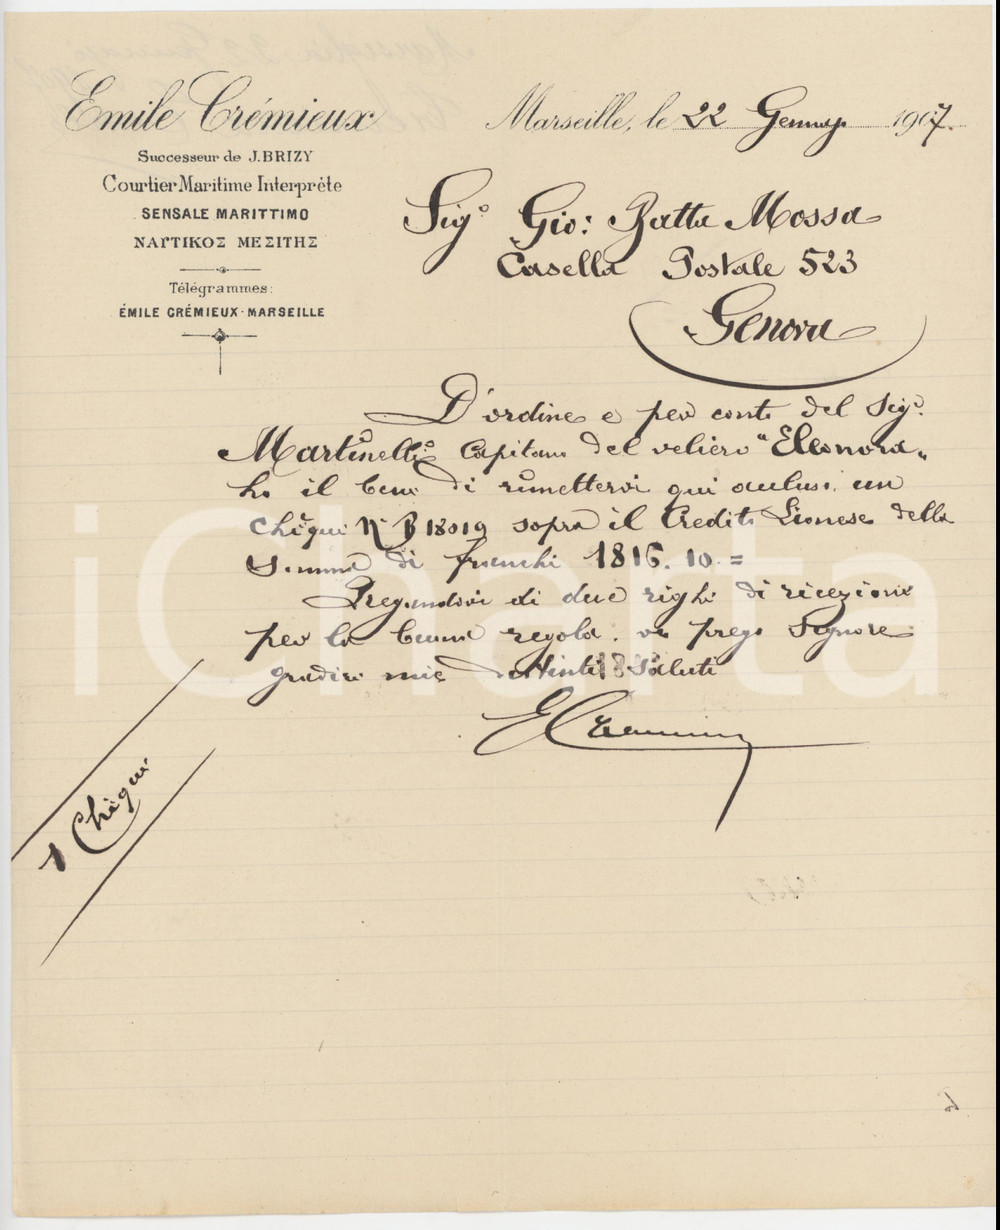 Emile Crémieux
Successeur de J. BRIZY
Courtier Maritime Interprète
SENSALE MARITTIMO
ΝΑΥΤΙΚΟΣ ΜΕΣΙΤΗΣ
Télégrammes:
ÉMILE CRÉMIEUX-MARSEILLE
Marseille, le 22 1907.
Sigº Gio: Batta Mossa
Casella Postale 523
Genova
D'ordine e per conto del Sigº
Martinelli Capitano del veliero "Eleonora"
ho il bene di rimettervi qui acclusi un
chèque Nº B 18019 sopra il Credito Lionese della
Somma di franchi 1816.10.=
Pregandovi di due righi di ricezione
per la buona regola. vi prego Signore
gradire mie distinti Saluti
ECremieux
1 Chèque
iCharta